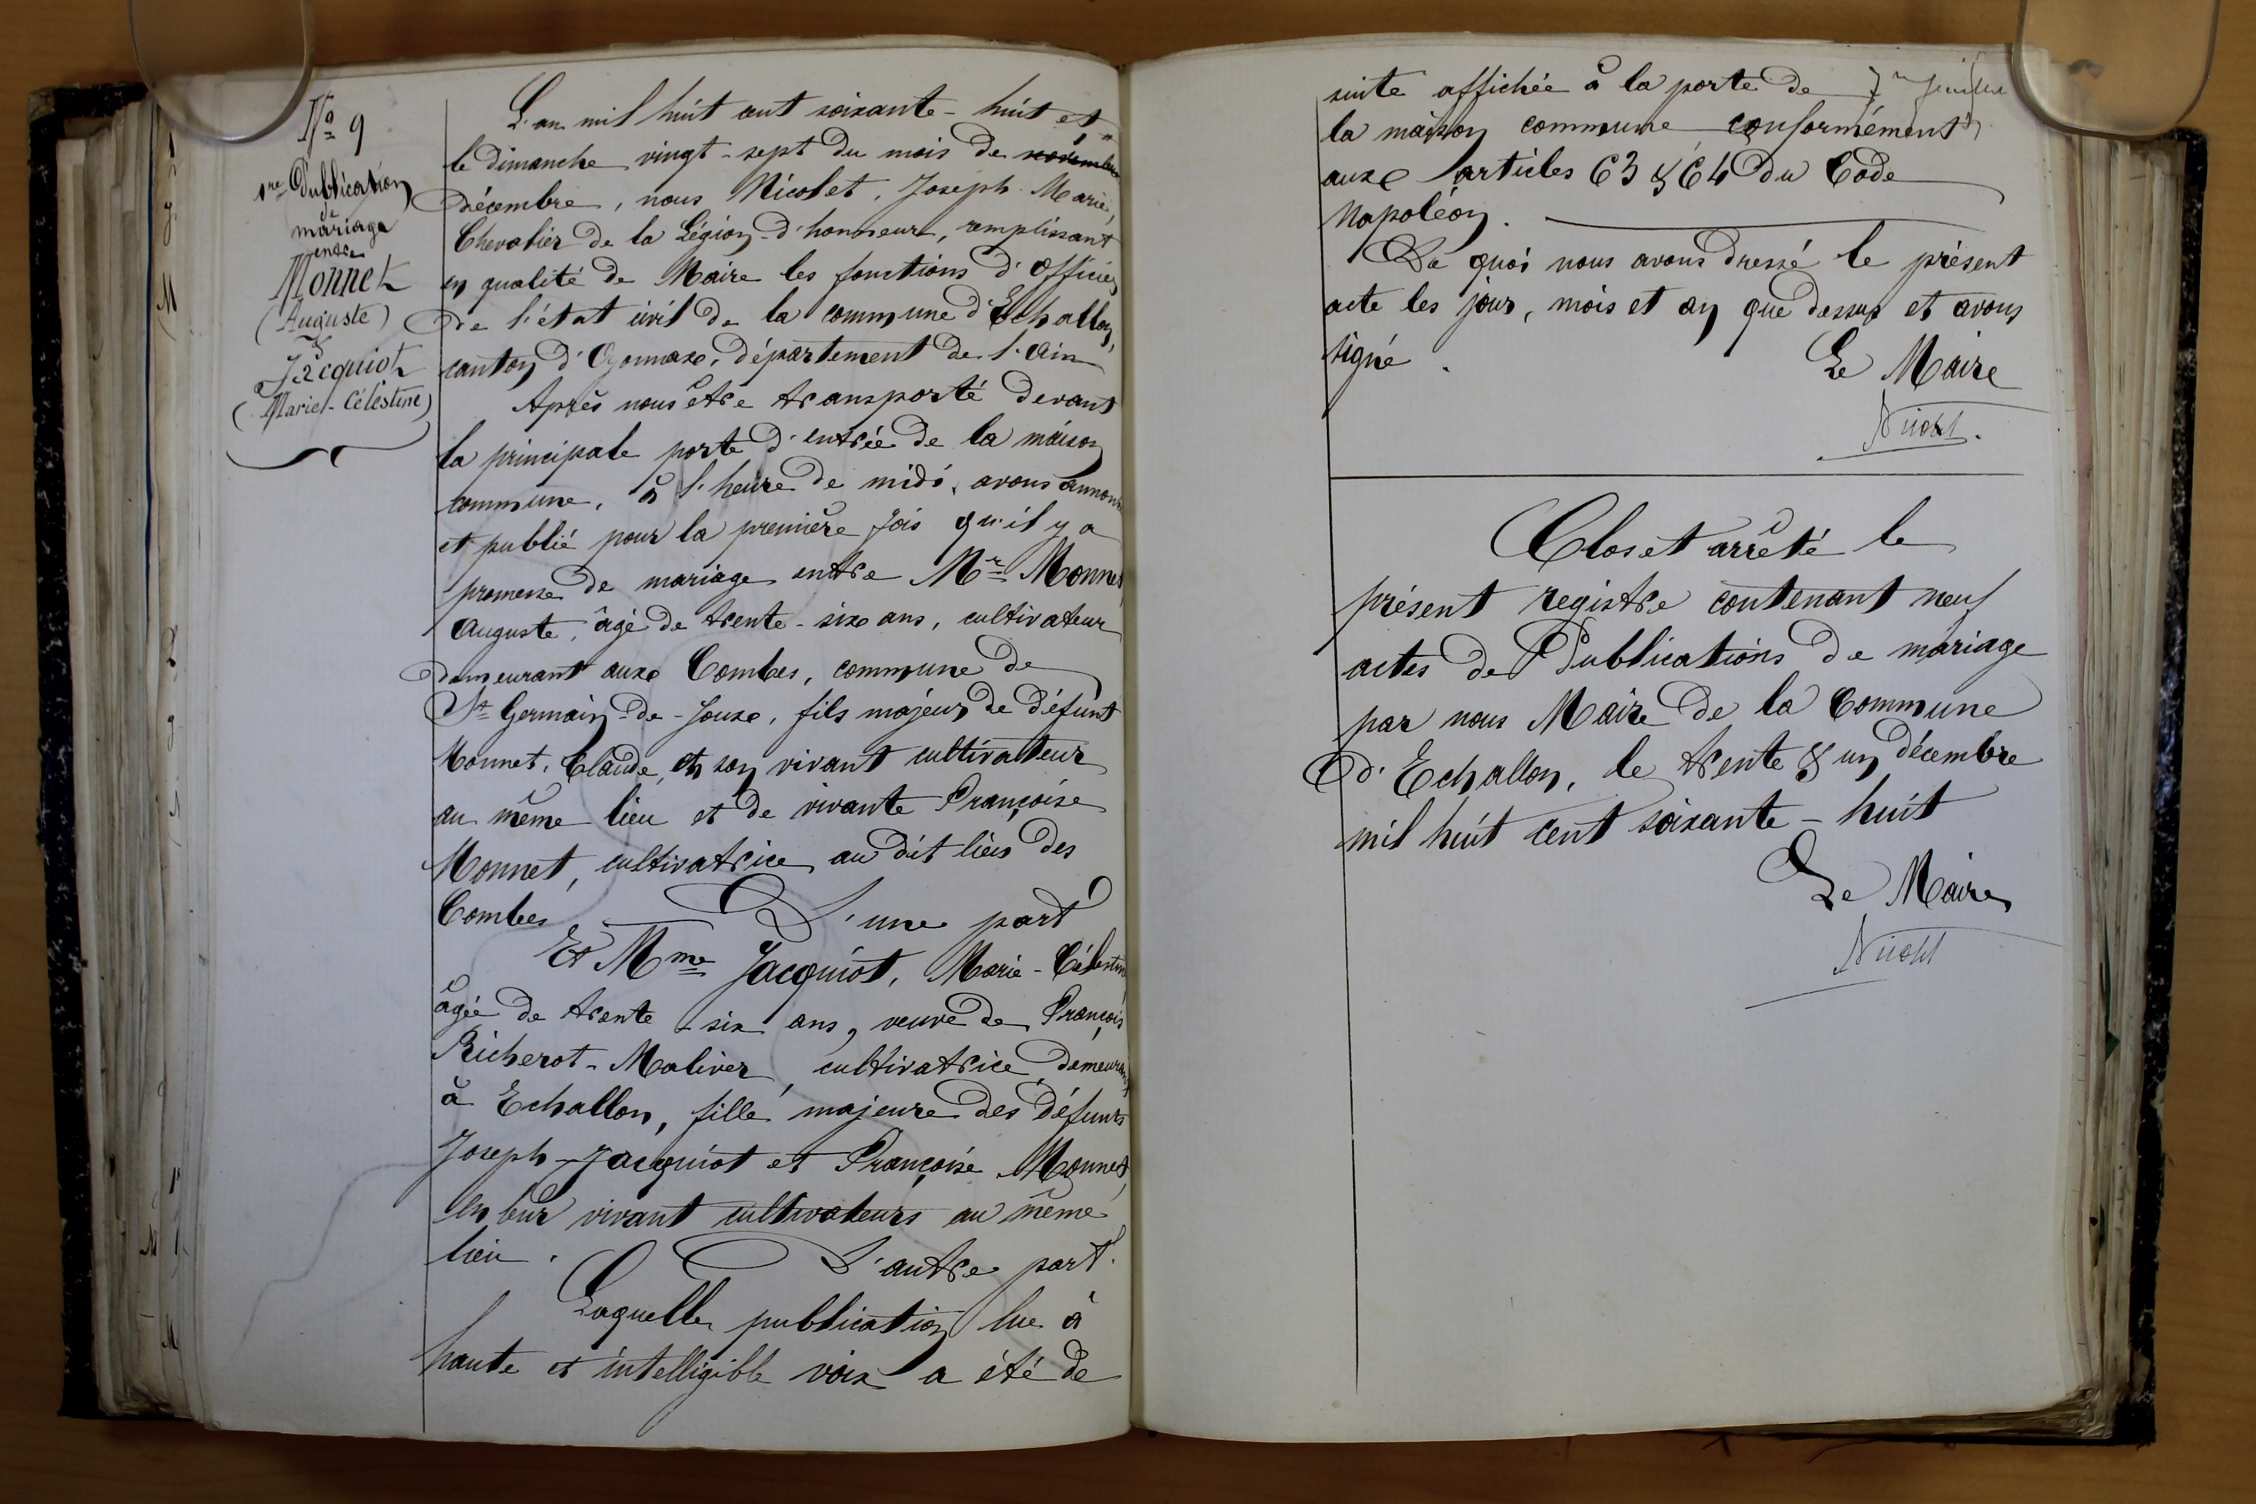 No 9
1re Publication
de
mariage
entre
Monnet
(Auguste)
&
Jacquiot
(Marie-Célestine)
L'an mil huit cent soixante-huit et
le dimanche vingt-sept du mois de novembre
décembre, nous Nicolet, Joseph Marie,
Chevalier de la Légion-d'honneur, remplissant
en qualité de Maire les fonctions d'Officier
de l'état civil de la commune d'Echallon,
canton d'Oyonnax, département de l'Ain
Après nous être transporté devant
la principale porte d'entrée de la maison
commune, à l'heure de midi, avons annoncé
et publié pour la première fois qu'il y a
promesse de mariage entre Mr Monnet,
Auguste, âgé de trente-six ans, cultivateur
demeurant aux Combes, commune de
St Germain-de-Joux, fils majeur de défunt
Monnet, Claude, en son vivant cultivateur
au même lieu et de vivante Françoise
Monnet, cultivatrice au dit lieu des
Combes D'une part
Et Mme Jacquiot, Marie-Célestine,
âgée de trente-six ans, veuve de François
Richerot-Maliver, cultivatrice demeurant
à Echallon, fille majeure des défunts
Joseph Jacquiot et Françoise Monnet,
en leur vivant cultivateurs au même
lieu. D'autre part.
Laquelle publication lue à
haute et intelligible voix a été de
suite affichée à la porte de
la maison commune conformément
aux articles 63 & 64 du Code
Napoléon.
De quoi nous avons dressé le présent
acte les jour, mois et an que dessus et avons
signé.
Le Maire
Nicolet
Clos et arrêté le
présent registre contenant neuf
actes de Publications de mariage
par nous Maire de la Commune
d'Echallon, le trente & un décembre
mil huit cent soixante-huit
Le Maire
Nicolet